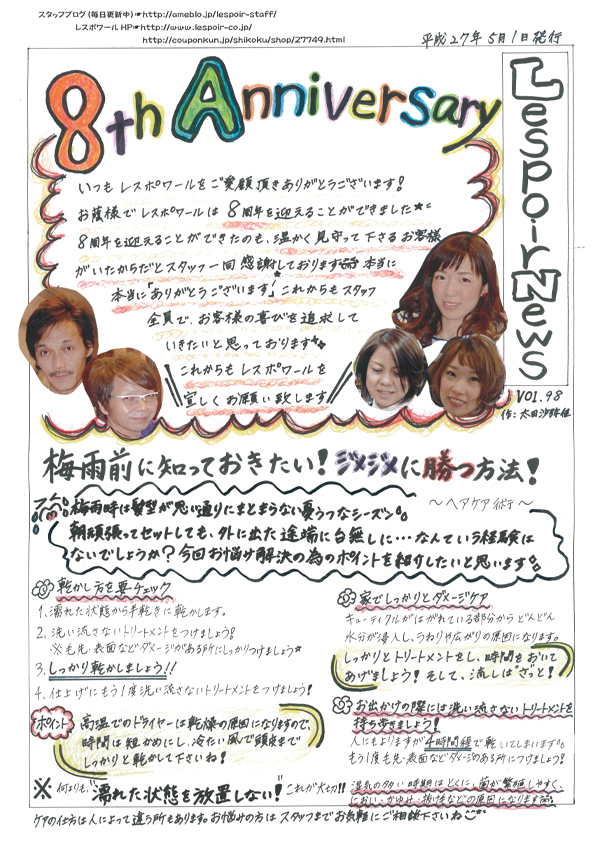 スタッフブログ(毎日更新中)☞http://ameblo.jp/lespoir-staff/
レスポワールHP☞http://www.lespoir-co.jp/
http://couponkun.jp/shikoku/shop/27749.html
平成27年5月1日発行
8th Anniversary
Lespoir News
いつもレスポワールをご愛顧頂きありがとうございます!
お蔭様でレスポワールは8周年を迎えることができました
8周年を迎えることができたのも、温かく見守って下さるお客様
がいたからだとスタッフ一同感謝しております 本当に
本当に「ありがとうございます」これからもスタッフ
全員で、お客様の喜びを追求して
いきたいと思っております
これからもレスポワールを
宜しくお願い致します
VOl.98
作:太田沙弥佳
梅雨前に知っておきたい!ジメジメに勝つ方法!
~ヘアケア術~
梅雨時は髪型が思い通りにまとまらない憂うつなシーズン。
朝頑張ってセットしても、外に出た途端に台無しに…なんていう経験は
ないでしょうか?今回お悩み解決の為のポイントを紹介したいと思います。
乾かし方を要チェック
1、濡れた状態から手乾きに乾かします。
2、洗い流さないトリートメントをつけましょう!
※毛先・表面などダメージがある所にしっかりつけましょう
3、しっかり乾かしましょう!!
4、仕上げにもう1度洗い流さないトリートメントをつけましょう!
ポイント
高温でのドライヤーは乾燥の原因になりますので、
時間は短かめにし、冷たい風で頭皮まで
しっかりと乾かして下さいね!
家でしっかりとダメージケア
キューティクルがはがれている部分からどんどん
水分が浸入し、うねりや広がりの原因になります。
しっかりとトリートメントをし、時間をおいて
あげましょう!そして、流しは“ざっと!
お出かけの際には洗い流さないトリートメントを
持ち歩きましょう!
人にもよりますが4時間程で乾いてしまいます。
もう1度毛先・表面などダメージのある所につけましょう!
※何よりも、“濡れた状態を放置しない!”これが大切!!
湿気の多い時期はとくに、菌が繁殖しやすく、
におい、かゆみ、抜け毛などの原因になります
ケアの仕方は人によって違う所もあります。お悩みの方はスタッフまでお気軽にご相談下さいね